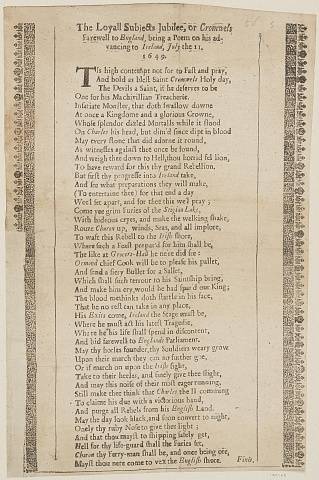 The Loyall Subjects Jubilee, or Cromwels
Farewell to England, being a Poem on his ad-
vancing to Ireland, July the 11.
1649.
Tis high contempt not for to Fast and pray,
And hold as blest Saint Cromwels Holy day,
The Devils a Saint, if he deserves to be
One for his Machivillian Treacherie.
Insatiate Monster, that doth swallow downe
At once a Kingdome and a glorious Crowne,
Whose splendor dazled Mortals while it stood
On Charles his head, but dim'd since dipt in blood
May every stone that did adorne it round,
As witnesses against thee once be found,
And weigh thee down to Hell, thou horrid fel lion,
To have reward for this thy grand Rebellion.
But first thy progresse into Ireland take,
And see what preparations they will make,
(To entertaine thee) for that and a day
Wee'l set apart, and for thee this we'l pray;
Come yee grim Furies of the Stygian Lake,
With hideous cryes, and make the welkins shake,
Rouze Charon up, winds, Seas, and all implore,
To waft this Rebell to the Irish shore,
Where such a Feast prepar'd for him shall be,
The like at Grocers-Hall he nere did see:
Ormond chief Cook will be to please his pallet,
And send a fiery Bullet for a Sallet,
Which shall such terrour to his Saintship bring,
And make him cry, would he had spar'd our King;
The blood methinks doth startle in his face,
That he no rest can take in any place,
His Exits come, Ireland the Stage must be,
Where he must act his latest Tragedie,
Where he his life shall spend in discontent,
And bid farewell to Englands Parliament.
May thy horses founder, thy Souldiers weary grow
Upon their march they can no further goe,
Or if march on upon the Irish sight,
Take to their heeles, and finely give thee slight,
And may this noise of their most eager running,
Still make thee think that Charles the II comming
To claime his due with a victorious hand,
And purge all Rebels from his English Land.
May the day look black, and soon convert to night,
Onely thy ruby Nose to give thee light;
And that thou mayst to shipping safely get,
Hell for thy life-guard shall the Furies set,
Charon thy Ferry-man shall be, and once being ore,
Mayst thou nere come to vex the English shore. Finis.